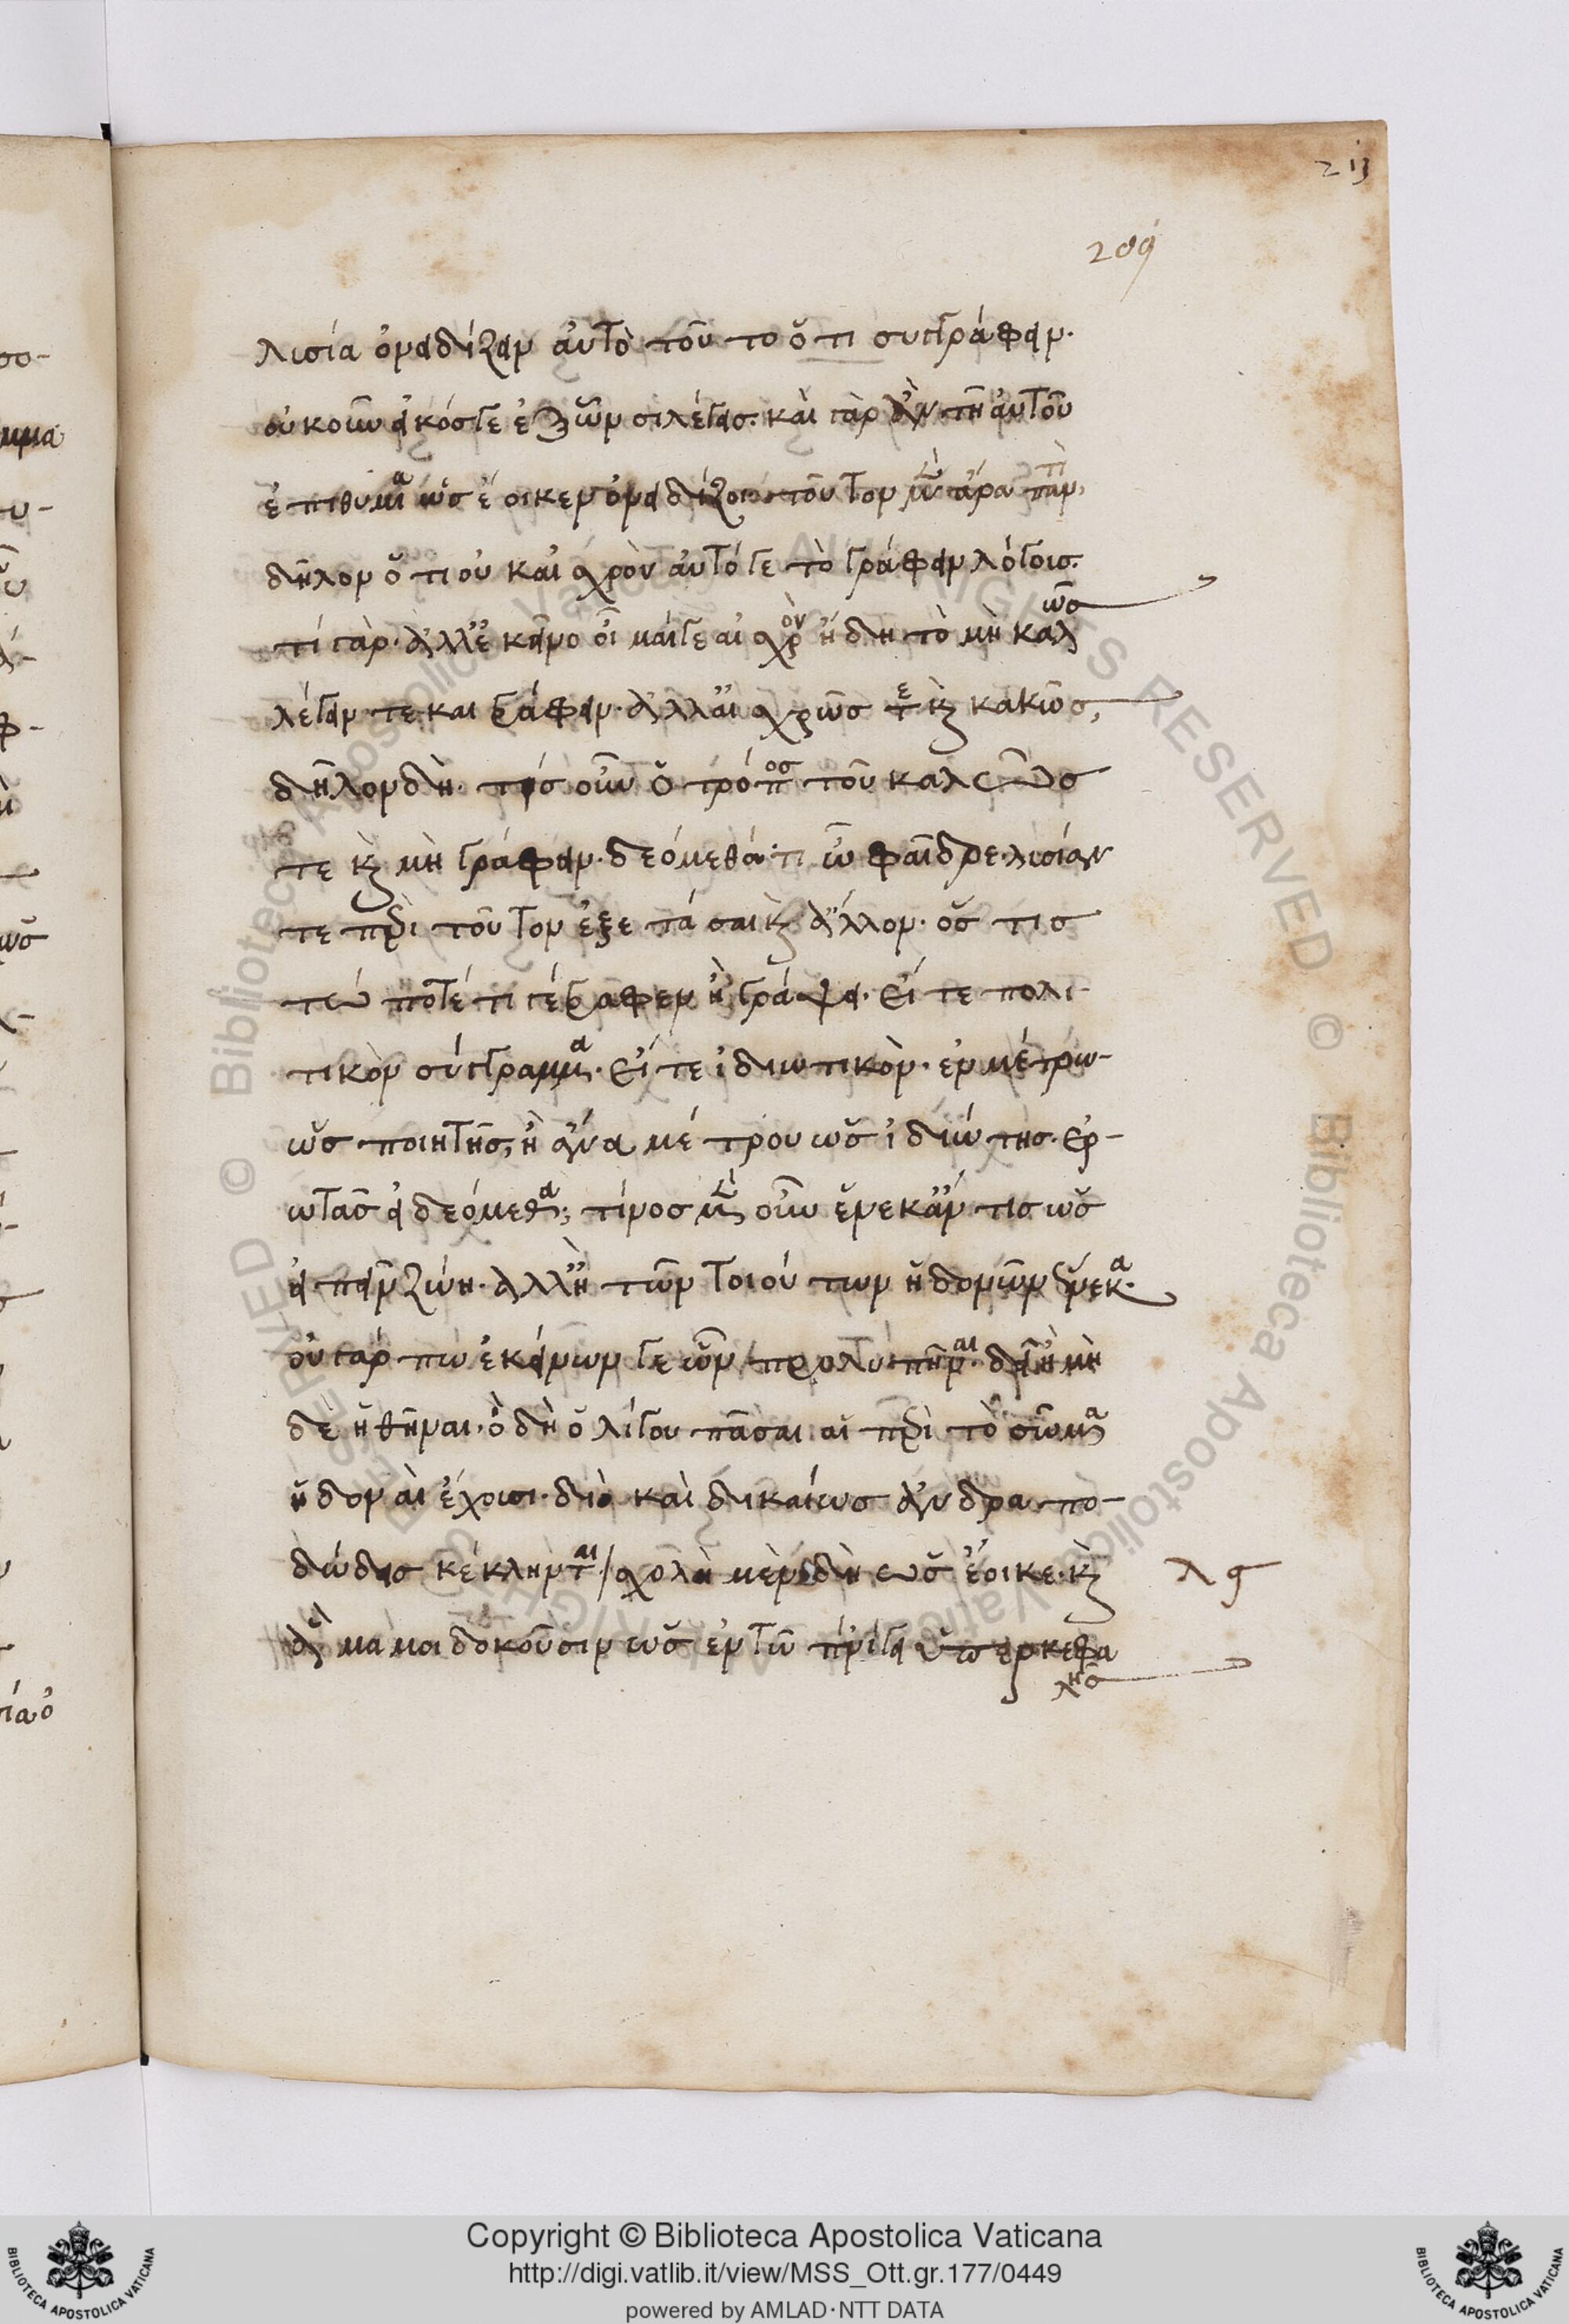 213
209
λισία ὀνειδίζειν αὐτὸ τοῦτο ὅτι συγγράφειν.
οὐκοῦν εἰκός γε ἐξ ὧν σὺ λέγεις. καὶ γὰρ ἂν τῇ αὑτοῦ
ἐπιθυμία ὡς ἔοικεν ὀνειδίζοι· τοῦτο μὲν ἄρα παντὶ
δῆλον ὅτι οὐκ αἰσχρὸν αὐτό γε τὸ γράφειν λόγους.
τί γάρ. ἀλλ' ἐκεῖνο οἶμαί γε αἰσχρὸν ἤδη τὸ μὴ καλῶς
λέγειν τε καὶ γράφειν. ἀλλ' αἰσχρῶς τε καὶ κακῶς,
δῆλον δή. τίς οὖν ὁ τρόπος τοῦ καλῶς
τε καὶ μὴ γράφειν. δεόμεθά τι ὦ φαῖδρε λυσίαν
τε περὶ τούτων ἐξετάσαι καὶ ἄλλον. ὅστις
πώποτέ τι γέγραφεν ἢ γράψει. εἴτε πολι-
τικὸν σύγγραμμα. εἴτε ἰδιωτικὸν. ἐν μέτρω
ὡς ποιητής, ἢ ἄνευ μέτρου ὡς ἰδιώτης. ἐρ-
ωτᾶς εἰ δεόμεθα; τίνος μὲν οὖν ἕνεκ' ἄν τις ὡς
εἰπεῖν ζώη. ἀλλ' ἢ τῶν τοιούτων ἡδονῶν ἕνεκα.
οὐ γάρ που ἐκείνων γε ὧν προλυπηθῆναι δεῖ ἢ μη
δὲ ἡσθῆναι. ὃ δὴ ὀλίγου πᾶσαι αἱ περὶ τὸ σῶμα
ἡδοναὶ ἔχουσι. διὸ καὶ δικαίως ἀνδραπο-
δώδεις κέκληνται/ σχολὴ μὲν δὴ ὡς ἔοικε. καὶ
λϛ
ἅμα μοι δοκοῦσιν ὡς ἐν τῶ πνίγει ὑπὲρ κεφα
λῆς
Copyright © Biblioteca Apostolica Vaticana
http://digi.vatlib.it/view/MSS_Ott.gr.177/0449
powered by AMLAD·NTT DATA